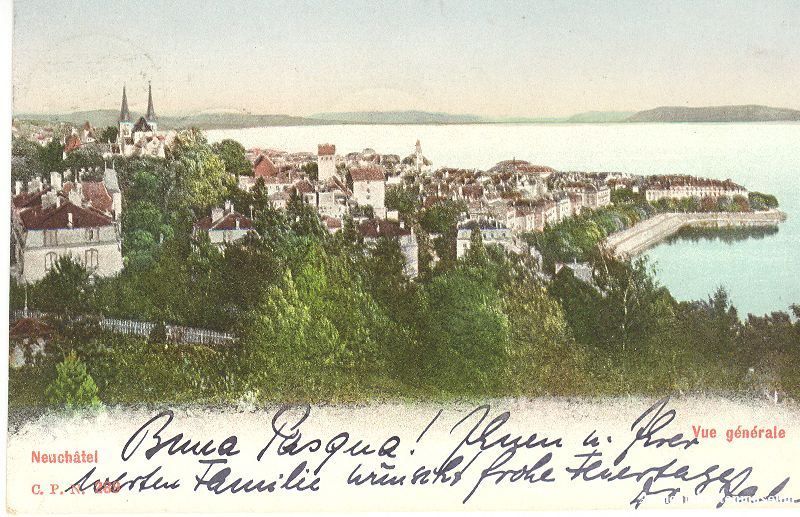 Neuchâtel
Vue générale
C. P. N. 269
Buna Pasqua! Ihnen u. Ihrer
werten Familie wünscht frohe Feiertage